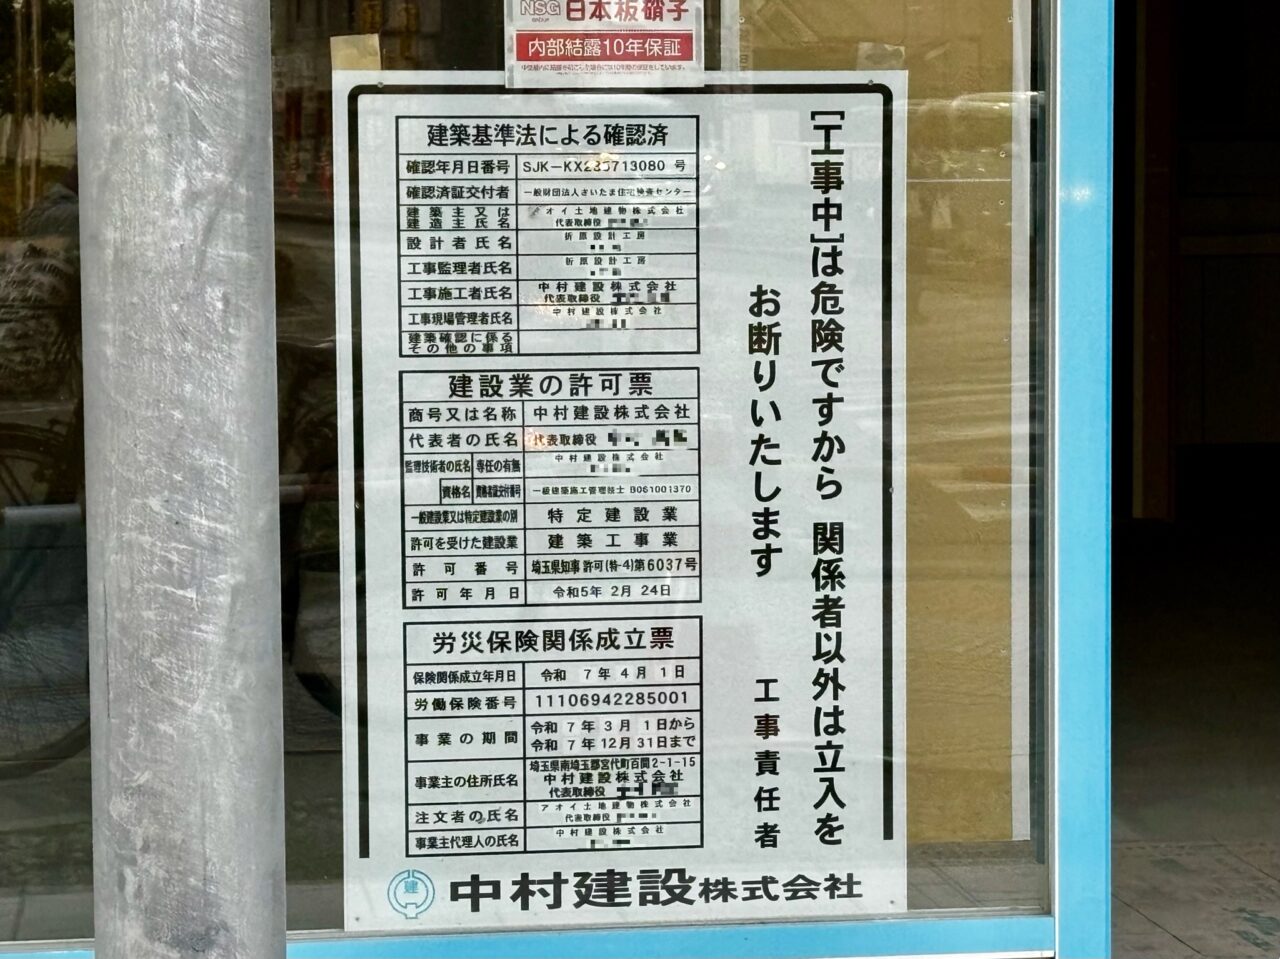 NSG 日本板硝子
内部結露10年保証
[工事中]は危険ですから 関係者以外は立入を
お断りいたします
工事責任者
建築基準法による確認済
確認年月日番号 SJK-KX235713080 号
確認済証交付者 一般財団法人さいたま住宅検査センター
建築主又は
建造主氏名
アオイ土地建物株式会社
代表取締役
設計者氏名 折原設計工房
工事監理者氏名 折原設計工房
工事施工者氏名 中村建設株式会社
代表取締役
工事現場管理者氏名 中村建設株式会社
建築確認に係る
その他の事項
建設業の許可票
商号又は名称 中村建設株式会社
代表者の氏名 代表取締役
監理技術者の氏名 専任の有無 中村建設株式会社
資格名 資格者証交付番号 一級建築施工管理技士 B061001370
一般建設業又は特定建設業の別 特定建設業
許可を受けた建設業 建築工事業
許可番号 埼玉県知事 許可(特-4)第6037号
許可年月日 令和5年 2月 24日
労災保険関係成立票
保険関係成立年月日 令和 7年 4月 1日
労働保険番号 11106942285001
事業の期間 令和 7年 3月 1日から
令和 7年 12月 31日まで
事業主の住所氏名 埼玉県南埼玉郡宮代町百間2-1-15
中村建設株式会社
代表取締役
注文者の氏名 アオイ土地建物株式会社
代表取締役
事業主代理人の氏名 中村建設株式会社
建 中村建設株式会社